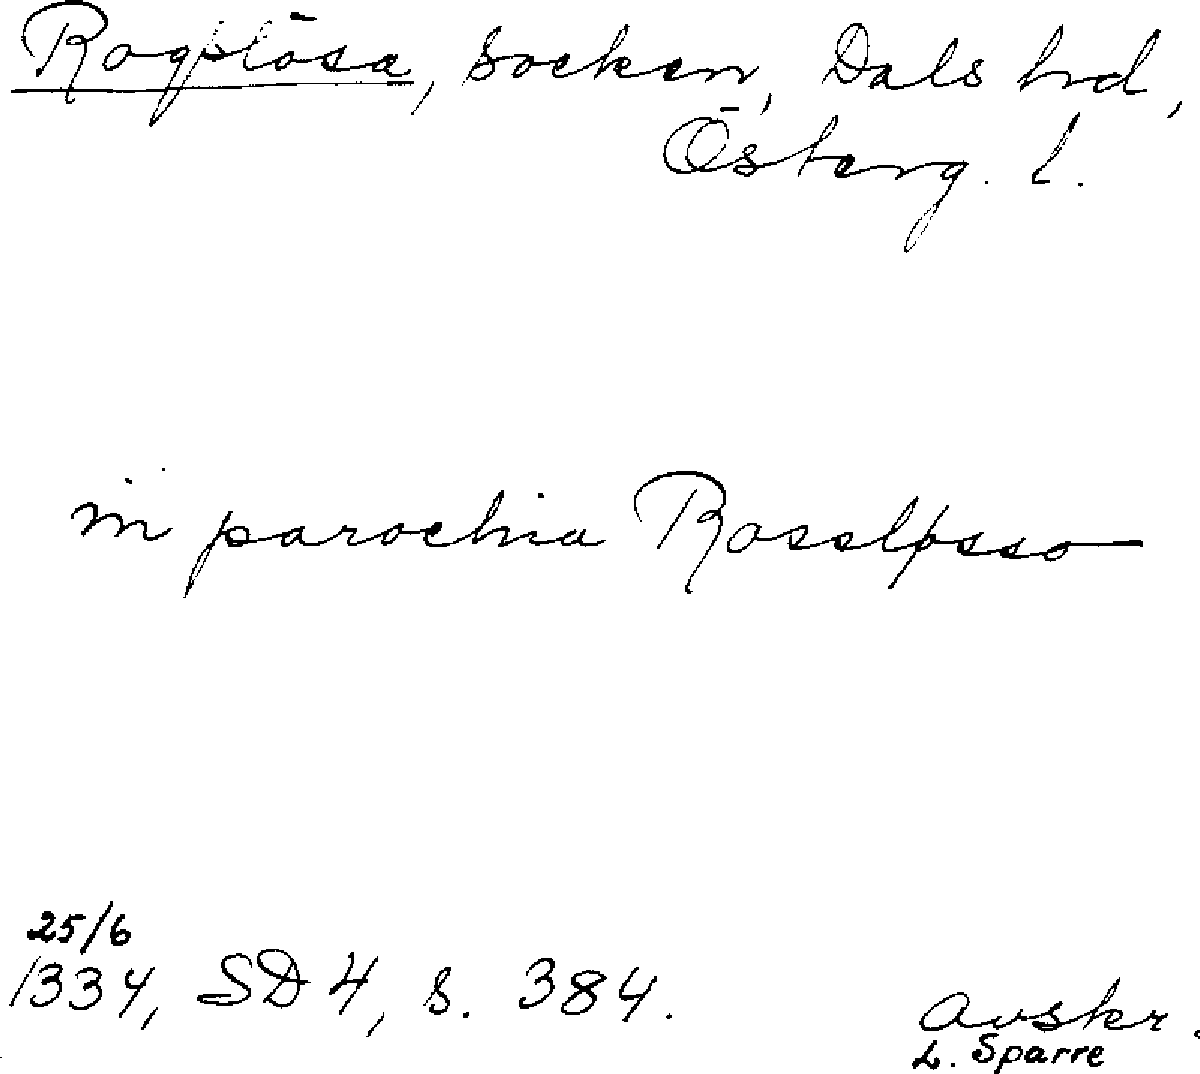 Rogslösa, socken, Dals hrd,
Österg. l.
in parochia Rossløsso
25/6
1334, SD 4, s. 384.
Avskr.
L. Sparre